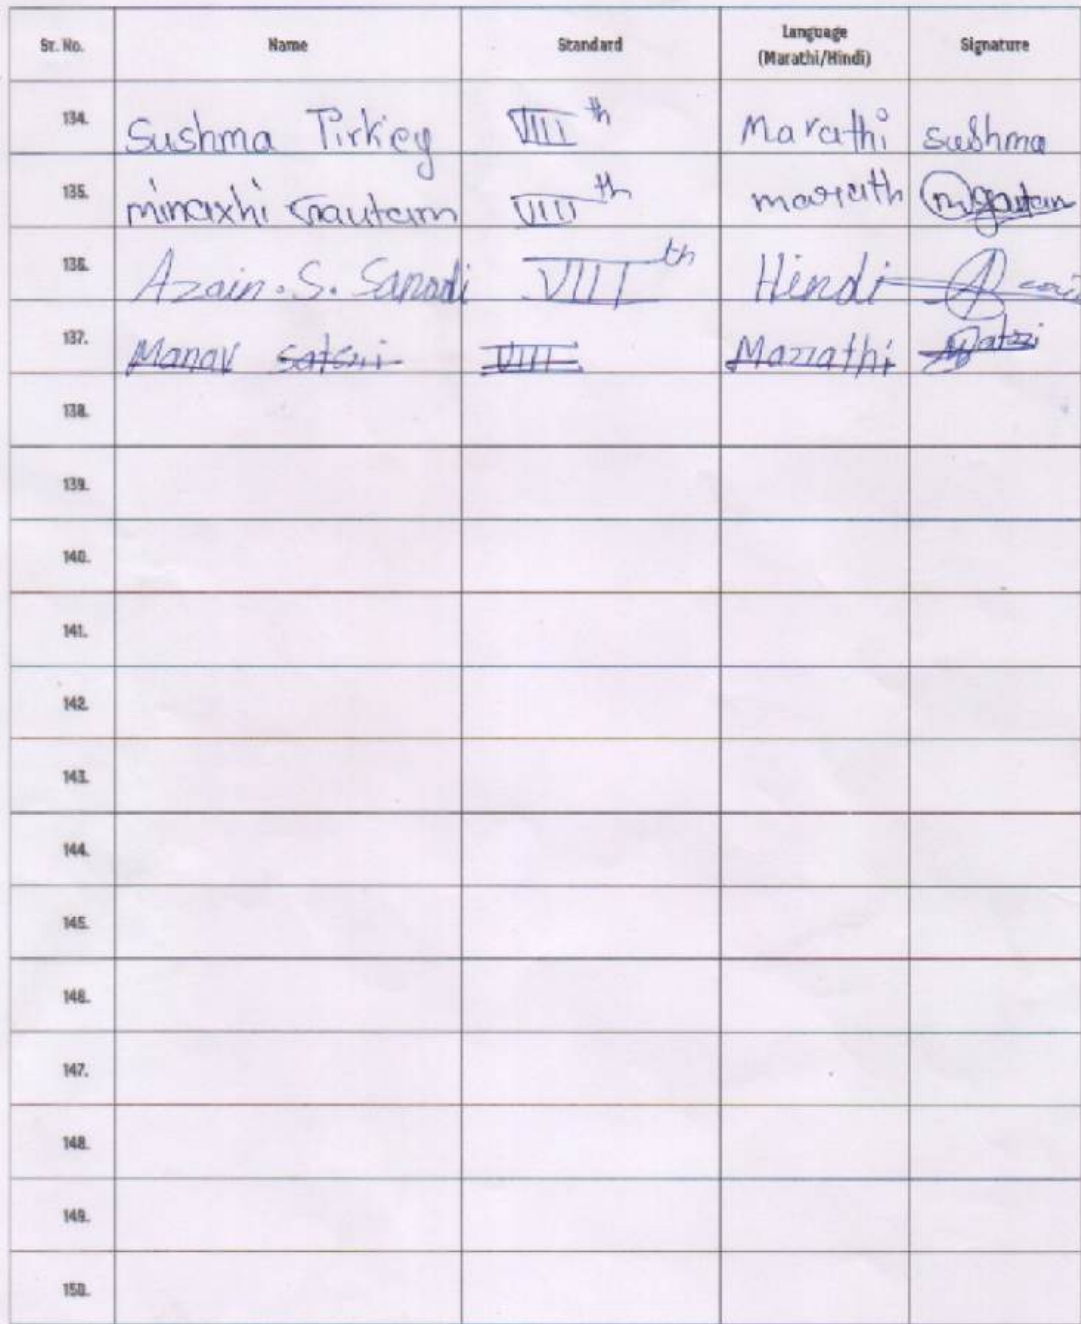 Sr. No. Name Standard Language (Marathi/Hindi) Signature
134. Sushma Tirkey VIII th Marathi sushma
135. minaxhi Gautam VIII th marath m gautam
136. Azain. S. Sanadi VIII th Hindi
137. Manav VIII Marrathi
138.
139.
140.
141.
142.
143.
144.
145.
146.
147.
148.
149.
150.